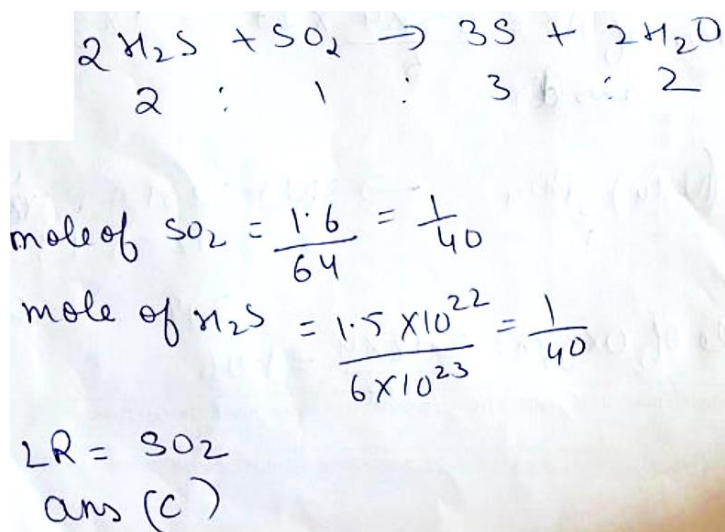 2H₂S + SO₂ → 3S + 2H₂O
2 : 1 : 3 : 2
mole of SO₂ = 1.6/64 = 1/40
mole of H₂S = 1.5×10²²/6×10²³ = 1/40
LR = SO2
ans (C)